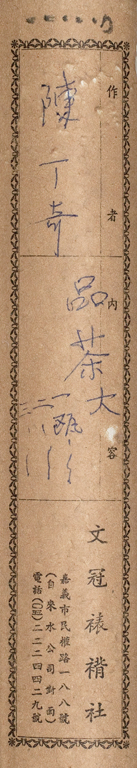 作者
陳丁奇
內容
品茶大
文冠裱褙社
嘉義市民權路一八八號
(自來水公司對面)
電話(05)二二二四四二九號